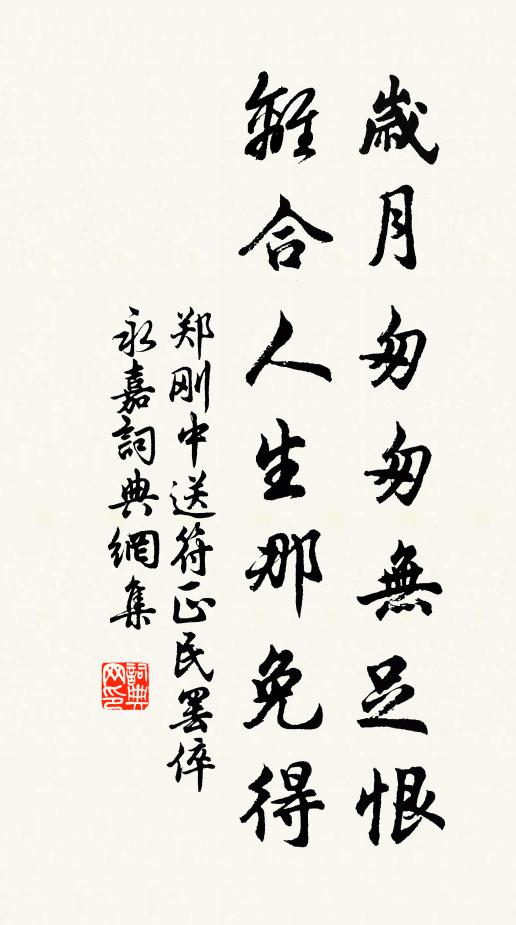 歲月匆匆無足恨
離合人生那免得
郑刚中送符正民罢倅
永嘉詞典網集
詞典網印